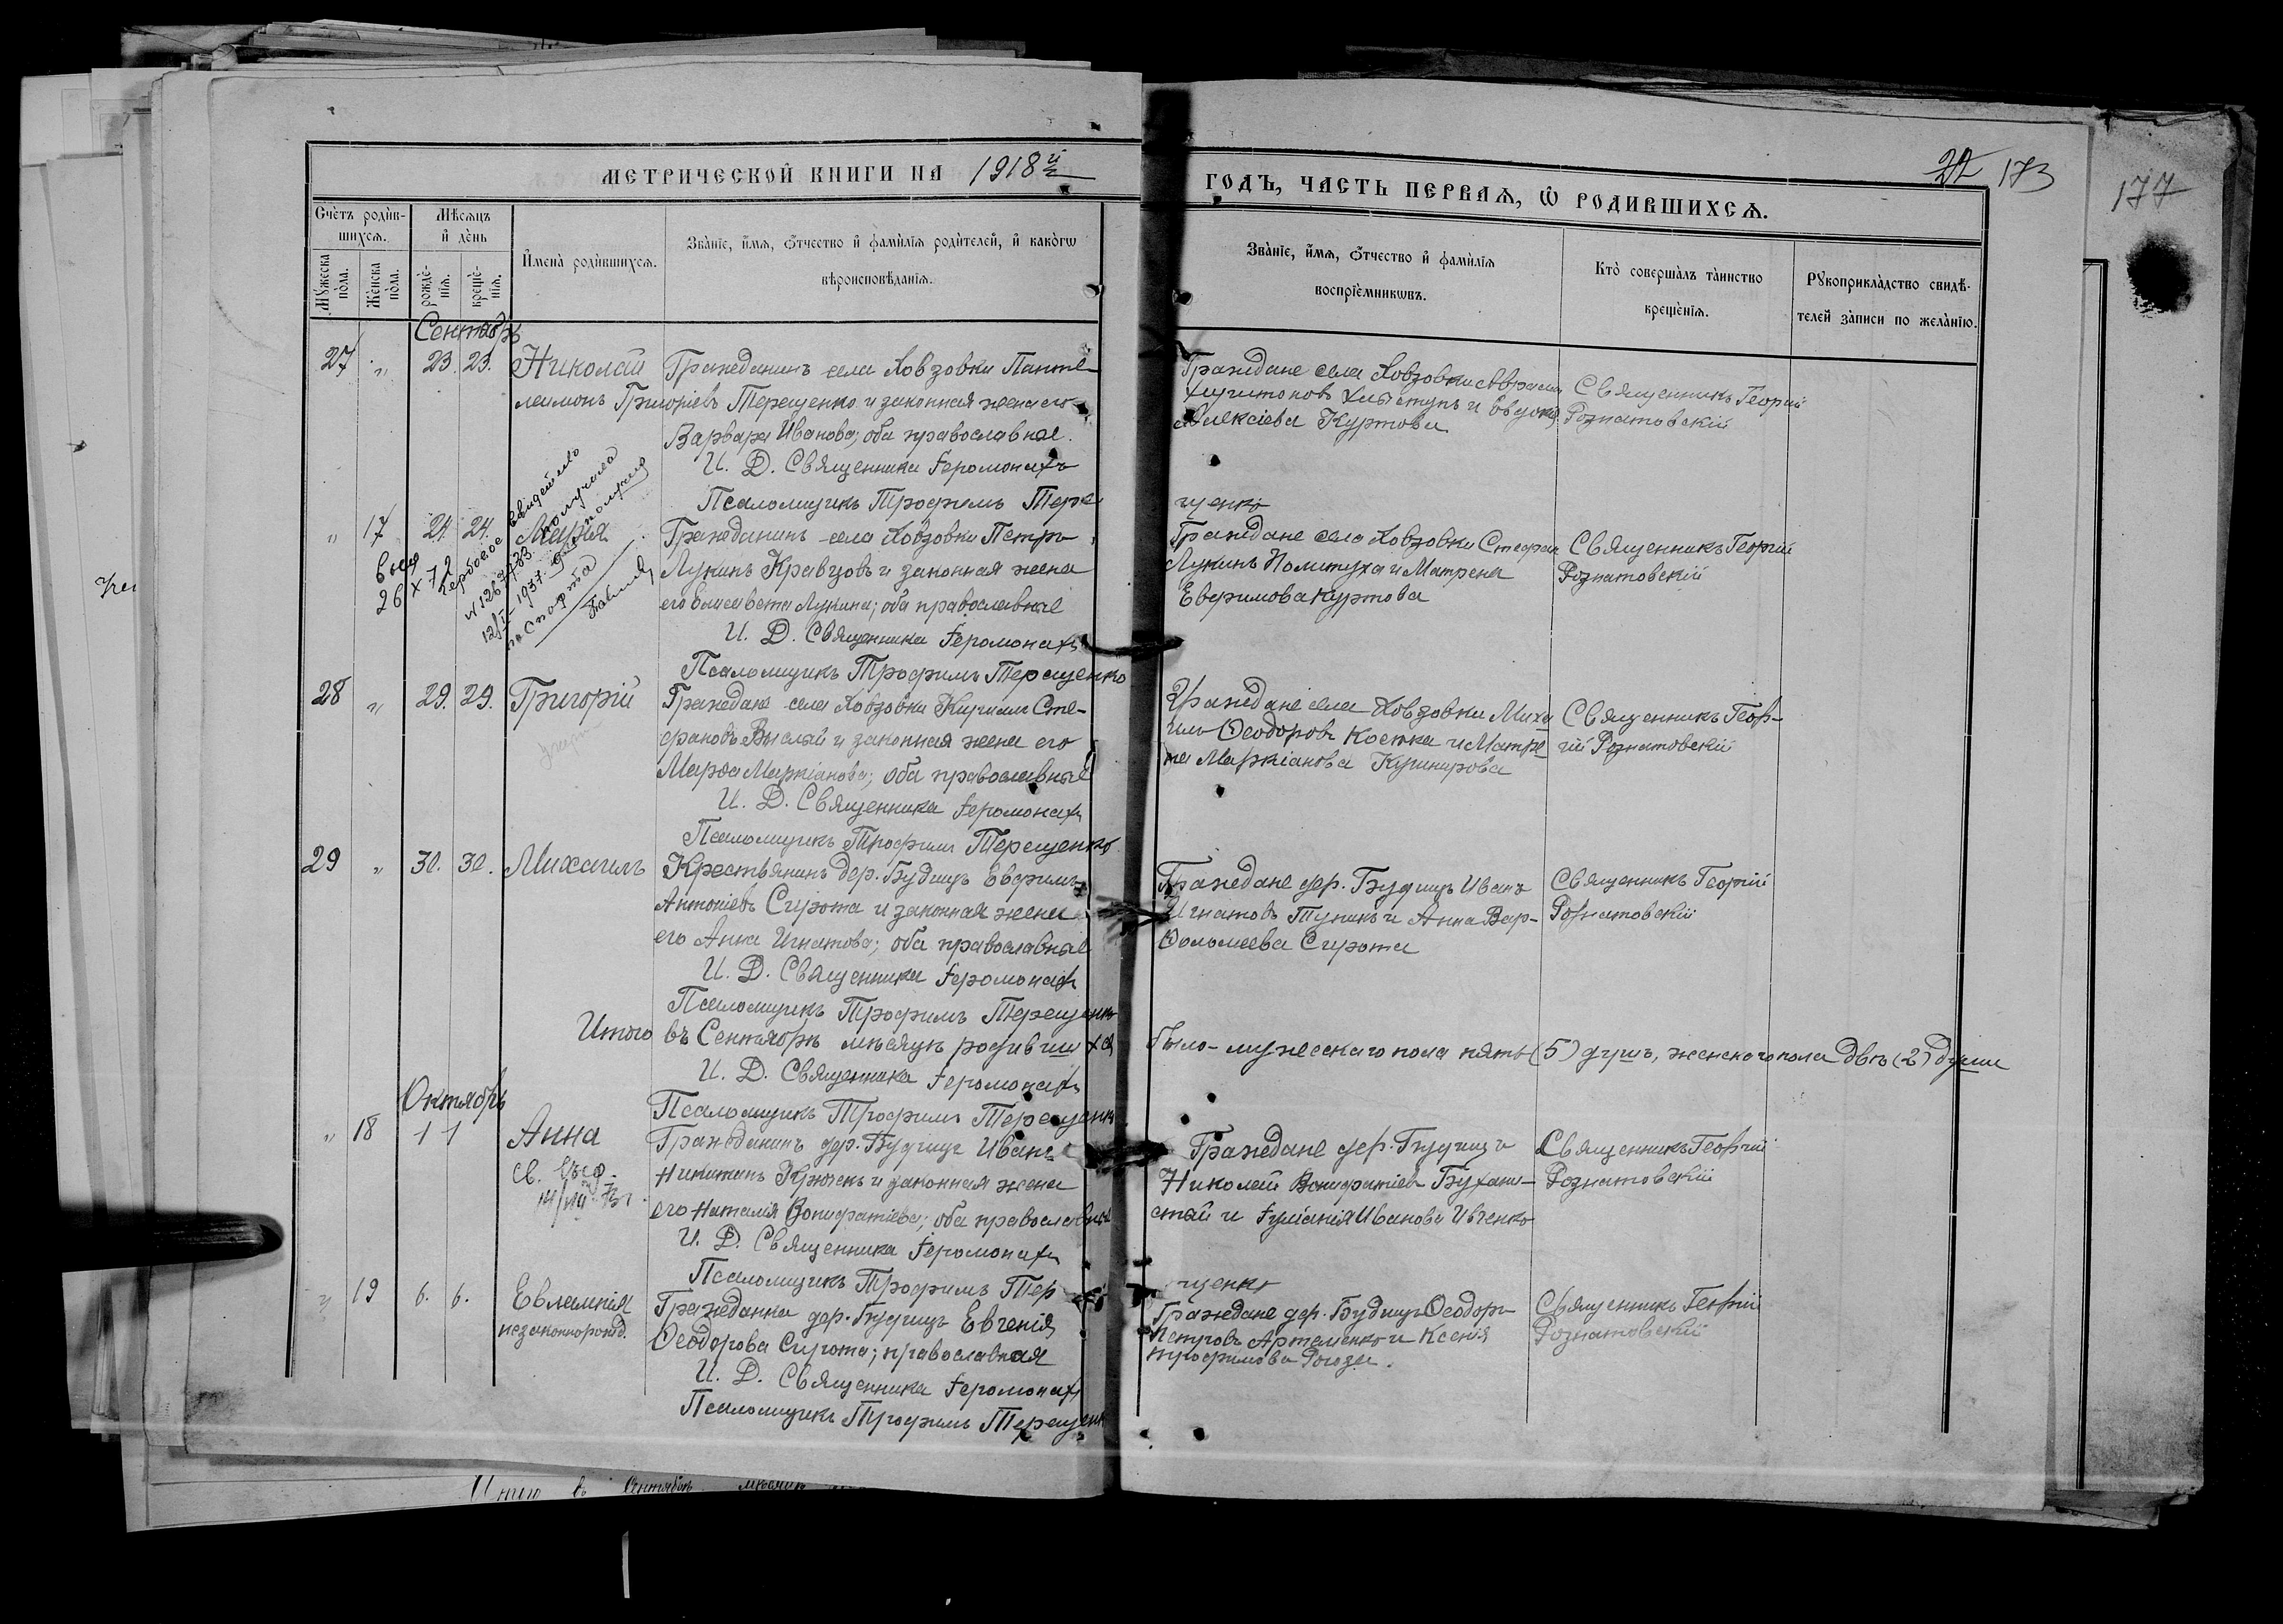 МЕТРИЧЕСКОЙ КНИГИ НА 1918й
ГОДЪ, ЧАСТЬ ПЕРВАѦ, Ѡ РОДИВШИХСѦ.
22 173
177
Счетъ родив-
шихсѧ.
Мѣсѧцъ
и день
Имена родившихсѧ.
Званіе, имѧ, ѻтчество и фамиліѧ родителей, и какогѡ
вѣроисповѣданіѧ.
Званіе, имѧ, ѻтчество и фамиліѧ
воспріемникѡвъ.
Кто совершалъ таинство
крещеніѧ.
Рꙋкоприкладство свидѣ-
телей записи по желанію.
Мꙋжеска
пола.
Женска
пола.
рожде-
ніѧ.
креще-
ніѧ.
Сентябрь
27 " 23. 23. Николай
Гражданинъ села Ховзовки Панте-
леимонъ Григоріевъ Терещенко и законная жена его
Варвара Иванова; оба православные.
И. Д. Священника Іеромонахъ
Псаломщикъ Трофимъ Тере
щенко
Граждане села Ховзовки
и Евдокія
Алексіева Куртова
Священникъ Георгій
Рознатовскій
" 17 24. 24. Марія
Гражданинъ села Ховзовки Петръ
Лукинъ Кравцовъ и законная жена
его Елисавета Лукина; оба православные
И. Д. Священника Іеромонахъ
Псаломщикъ Трофимъ Терещенко
Граждане села Ховзовки Стефан
Лукинъ и Матрена
Евфимова Куртова
Священникъ Георгій
Рознатовскій
получила
1937
паспорта
28 " 29. 29. Григорій
Граждане села Ховзовки Кирилл Сте-
фановъ и законная жена его
Марѳа Маркіанова; оба православные
И. Д. Священника Іеромонахъ
Псаломщикъ Трофимъ Терещенко
Граждане села Ховзовки Миха
илъ Ѳеодоровъ Костка и Матре
на Маркіанова Кушнирова
Священникъ Геор-
гій Рознатовскій
29 " 30. 30. Михаилъ
Крестьянинъ дер. Будищъ Евфимъ
Антоніевъ Сирота и законная жена
его Анна Игнатова; оба православные
И. Д. Священника Іеромонахъ
Псаломщикъ Трофимъ Терещенко
Граждане дер. Будищъ Иванъ
Игнатовъ Тупикъ и Анна Вар-
ѳоломеева Сирота
Священникъ Георгій
Рознатовскій
Итого въ Сентябрѣ мѣсяцѣ родившихся
было - мужескаго пола пять (5) душъ, женскаго пола двѣ (2) души
И. Д. Священника Іеромонахъ
Псаломщикъ Трофимъ Терещенк
Октябрь
" 18 1 1 Анна
Гражданинъ дер. Будищъ Иванъ
Никитинъ и законная жена
его Наталія Вонифатіева; оба православные
И. Д. Священника Іеромонахъ
Псаломщикъ Трофимъ Тер
щенко
Граждане дер. Будищъ
Николай Вонифатіевъ
и Іуліанія Иванова Ивченко
Священникъ Георгій
Рознатовскій
" 19 6. 6. Евлампія
незаконорожд.
Гражданка дер. Будищъ Евгенія
Ѳеодорова Сирота; православная
И. Д. Священника Іеромонахъ
Псаломщикъ Трофимъ Терещен
Граждане дер. Будищъ Ѳеодоръ
Петровъ Артеменко и Ксенія
Трофимова Рогоза.
Священникъ Георгій
Рознатовскій
Итого въ Сентябрѣ мѣсяцѣ